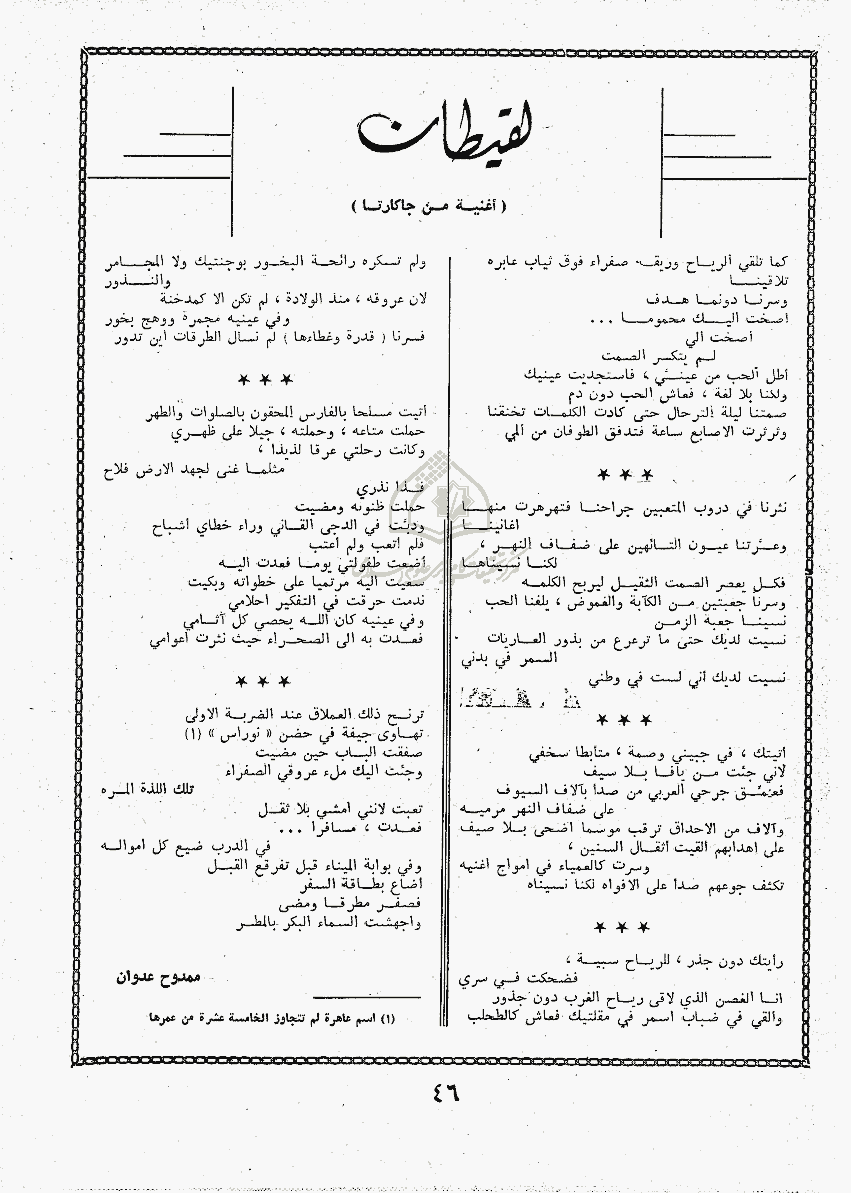 لقيطان
( أغنية من جاكارتا )
كما تلقي الرياح وريقة صفراء فوق ثياب عابره
تلاقينا
وسرنا دونما هدف
أصخت اليك محموما ...
أصخت الي
لم يتكسر الصمت
أطل الحب من عيني ، فاستجديت عينيك
ولكنا بلا لغة ، فعاش الحب دون دم
صمتنا ليلة الترحال حتى كادت الكلمات تخنقنا
وثرثرت الاصابع ساعة فتدفق الطوفان من ألمي
★ ★ ★
نثرنا في دروب المتعبين جراحنا فتهرهرت منها
اغانينا
وعرتنا عيون التائهين على ضفاف النهر ،
لكنا نسيناها
فكل يعصر الصمت الثقيل ليربح الكلمه
وسرنا جعبتين من الكآبة والغموض ، يلفنا الحب
نسينا جعبة الزمن
نسيت لديك حتى ما ترعرع من بذور العاريات
السمر في بدني
نسيت لديك أني لست في وطني
★ ★ ★
أتيتك ، في جبيني وصمة ، متأبطا سخفي
لأني جئت من يافا بلا سيف
فعمق جرحي العربي من صدأ بآلاف السيوف
على ضفاف النهر مرميه
وآلاف من الاحداق ترقب موسما أضحى بلا صيف
على اهدابهم القيت أثقال السنين ،
وسرت كالعمياء في امواج اغنيه
تكثف جوعهم صدأ على الافواه لكنا نسيناه
★ ★ ★
رأيتك دون جذر ، للرياح سبية ،
فضحكت في سري
انا الغصن الذي لاقى رياح الغرب دون جذور
والقي في ضباب اسمر في مقلتيك فعاش كالطحلب
ولم تسكره رائحة البخور بوجنتيك ولا المجامر
والنذور
لان عروقه ، منذ الولادة ، لم تكن الا كمدخنة
وفي عينيه مجمرة ووهج بخور
فسرنا ( قدرة وغطاءها ) لم نسأل الطرقات أين تدور
★ ★ ★
أتيت مسلحا بالفارس المحقون بالصلوات والطهر
حملت متاعه ، وحملته ، جيلا على ظهري
وكانت رحلتي عرقا لذيذا ،
مثلما غنى لجهد الارض فلاح
فذا نذري
حملت ظنونه ومضيت
ودبت في الدجى القاني وراء خطاي أشباح
فلم أتعب ولم أعتب
أضعت طفولتي يوما فعدت اليه
سعيت اليه مرتميا على خطواته وبكيت
ندمت حرقت في التفكير احلامي
وفي عينيه كان الله يحصي كل آثامي
فعدت به الى الصحراء حيث نثرت اعوامي
★ ★ ★
ترنح ذلك العملاق عند الضربة الاولى
تهاوى جيفة في حضن « نوراس » (١)
صفقت الباب حين مضيت
وجئت اليك ملء عروقي الصفراء
تلك اللذة المره
تعبت لانني أمشي بلا ثقل
فعدت ، مسافرا ...
في الدرب ضيع كل امواله
وفي بوابة الميناء قبل تفرقع القبل
أضاع بطاقة السفر
فصفر مطرقا ومضى
واجهشت السماء البكر بالمطر
ممدوح عدوان
(١) اسم عاهرة لم تتجاوز الخامسة عشرة من عمرها
٤٦